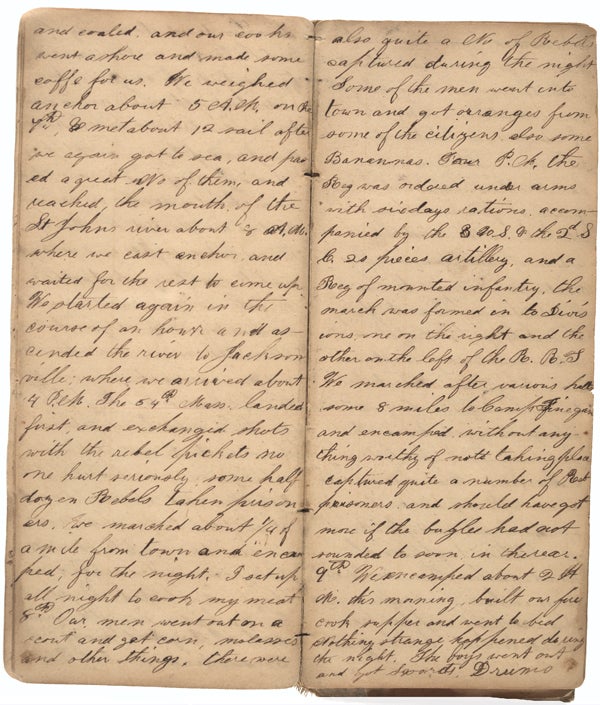 and coaled, and our cooks
went ashore and made some
coffe for us. We weighed
anchor about 5 A.M. on the
7th & met about 12 sail after
we again got to sea, and pas
ed a great No of them, and
reached, the mouth of the
St Johns river about 8 A.M.
where we cast anchor and
waited for the rest to come up.
We started again in the
course of an hour and as-
cended the river to Jackson
ville; where we arrived about
4 P.M. The 54th Mass. landed
first, and exchanged shots
with the rebel pickets no
one hurt seriously, some half
dozen Rebels taken prison
ers. we marched about 1/4 of
a mile from town and encam
ped, for the night. I set up
all night to cook my meat
8th Our men went out on a
scout and got corn, molasses
and other things, there were
also quite a No of Rebels
captured during the night
Some of the men went into
town and got orranges from
some of the citizens also some
Bananas. Four P.M. the
Reg was ordored under arms
with six days rations, accom-
panied by the 8 U.S. & the 2d S
C. 20 pieces artillery, and a
Reg of mounted infantry, the
march was formed in to Divis
ions, one on the right and the
other on the left of the R. R. S
We marched after various halts
some 8 miles to Camp Finegan
and encamped, without any-
thing worthy of note taking place
captured quite a number of Reb
prisoners, and should have got
more if the bugles had not
sounded to soon, in the rear.
9th We encamped about 2 A
M. this morning, built our fire
cook supper and went to bed
Nothing strange happened during
the night. The boys went out
and got Drums